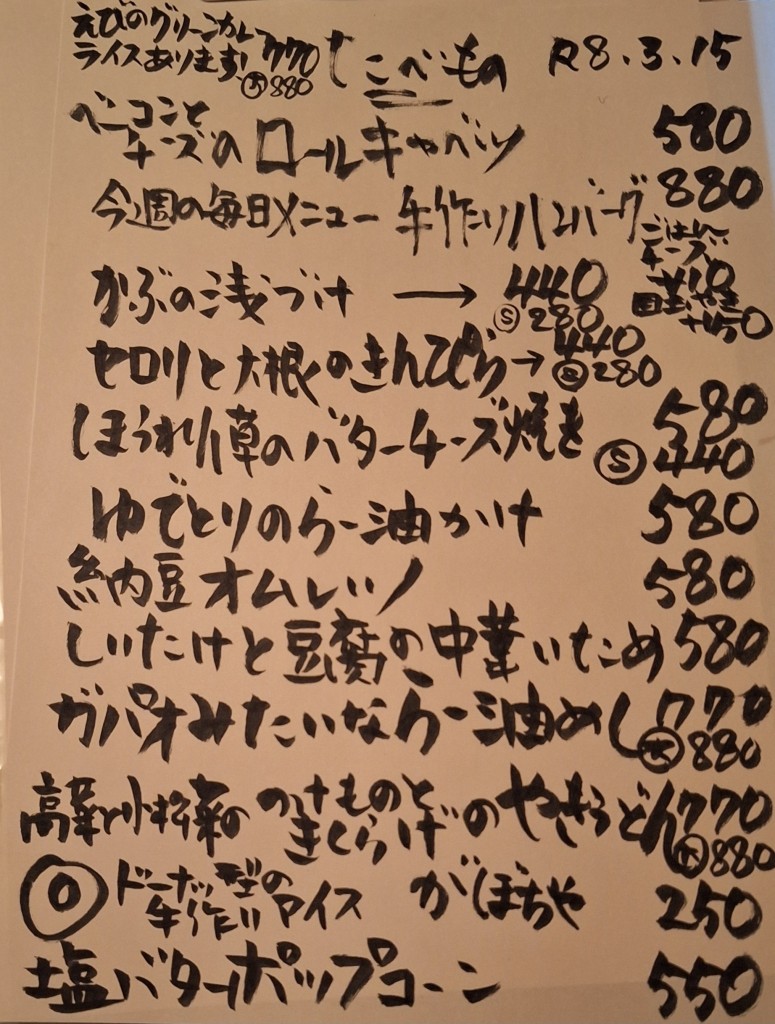 えびのグリーンカレー
ライスあります! 770
大880
たべもの R8.3.15
ベーコンと
チーズのロールキャベツ 580
今週の毎日メニュー 手作りハンバーグ 880
ごはん
チーズ
110
目玉やき
+150
かぶの浅づけ → 440
S 280
セロリと大根のきんぴら→ 440
S 280
ほうれん草のバターチーズ焼き 580
S 440
ゆでとりのらー油かけ 580
納豆オムレツ 580
しいたけと豆腐の中華いため 580
ガパオみたいならー油めし 770
大880
高菜と小松菜のつけものと
きくらげのやきうどん 770
大880
ドーナッツ型の
手作りアイス かぼちゃ 250
塩バターポップコーン 550